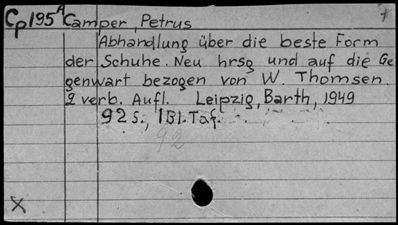 Cp 195 A Camper, Petrus
Abhandlung über die beste Form
der Schuhe. Neu hrsg und auf die Ge
genwart bezogen von W. Thomsen.
2 verb. Aufl. Leipzig, Barth, 1949
92 S., 1 Bl. Taf.
92
X